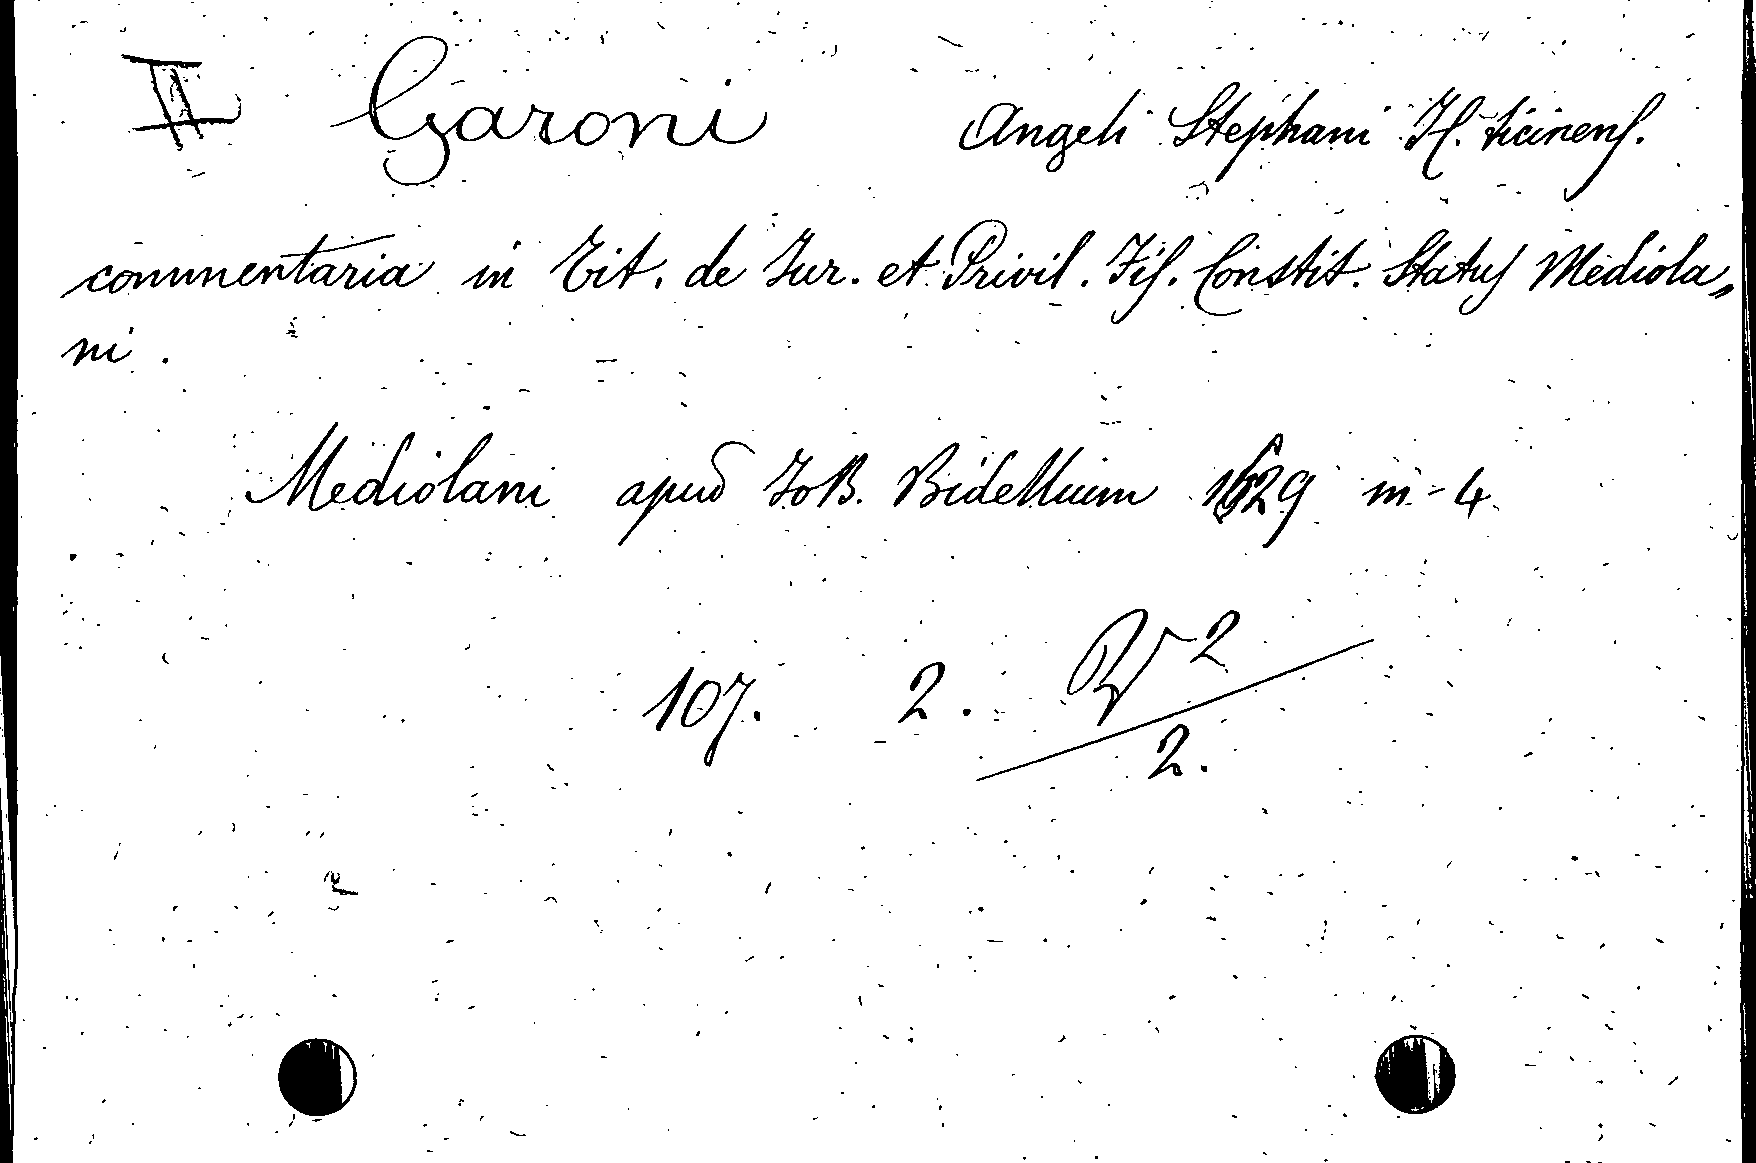 II Garoni Angeli Stephani H. ticinens.
commentaria in Tit. de Jur. et Privil. Fis. Constit. Status Mediola„
ni.
Mediolani apud JoB. Bidellium 1629 in-4.
107. 2. 2
2.